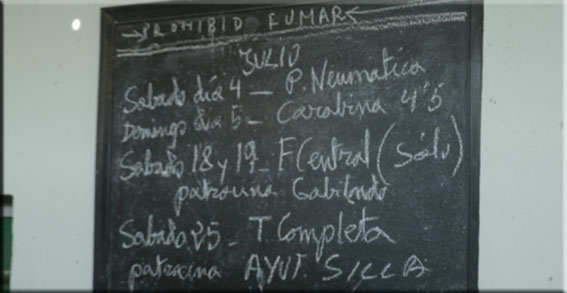 →PROHIBID FUMAR←
JULIO
Sabado día 4 _ P. Neumatica
Domingo dia 5 - Carabina 4'5
Sabado 18 y 19 - F Central (Sólo)
patrocina Gabilondo
Sabado 25 - T Completa
patrocina AYUT. SILLA